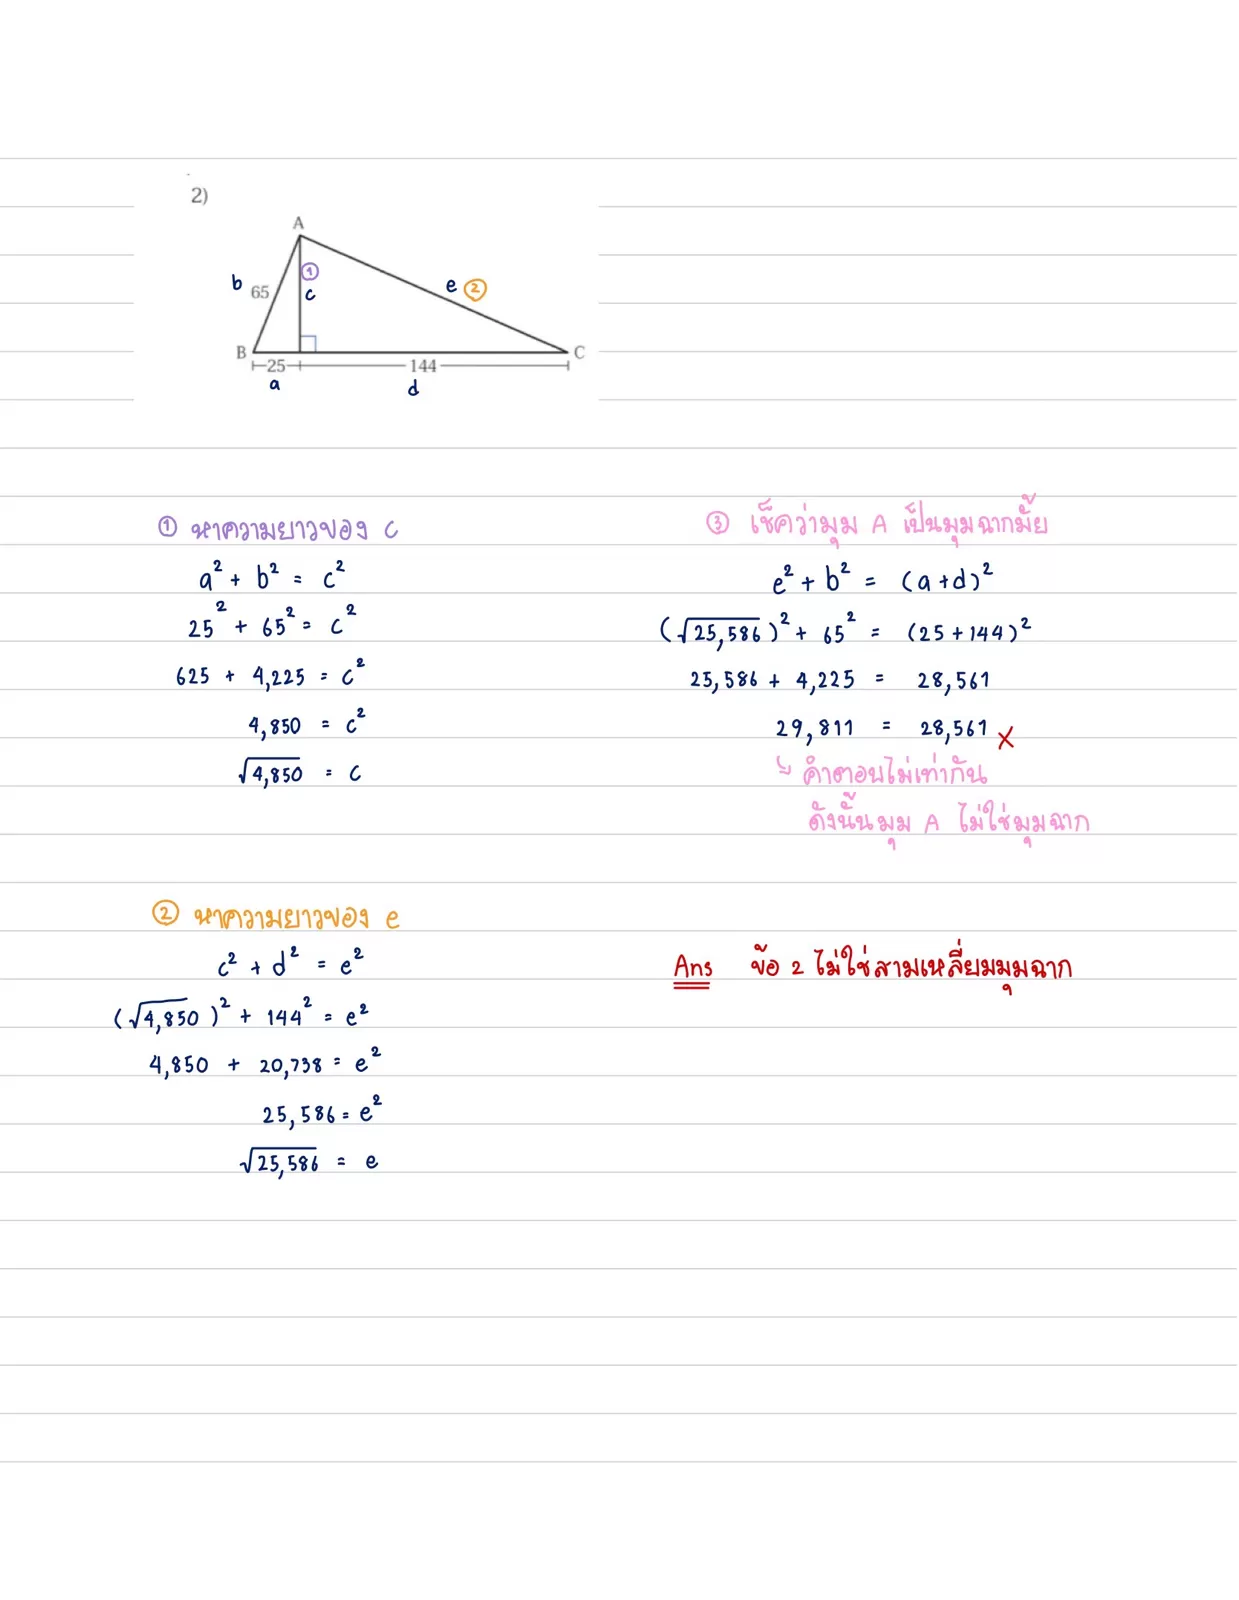 2)
A
①
b
65
c
e ②
B
C
25
144
a
d
① หาความยาวของ c
a² + b² = c²
25² + 65² = c²
625 + 4,225 = c²
4,850 = c²
√4,850 = c
② หาความยาวของ e
c² + d² = e²
(√4,850)² + 144² = e²
4,850 + 20,738 = e²
25,586 = e²
√25,586 = e
③ เช็คว่ามุม A เป็นมุมฉากมั้ย
e² + b² = (a+d)²
(√25,586)² + 65² = (25+144)²
25,586 + 4,225 = 28,561
29,811 = 28,561 ✗
↳ คำตอบไม่เท่ากัน
ดังนั้นมุม A ไม่ใช่มุมฉาก
Ans ข้อ 2 ไม่ใช่สามเหลี่ยมมุมฉาก